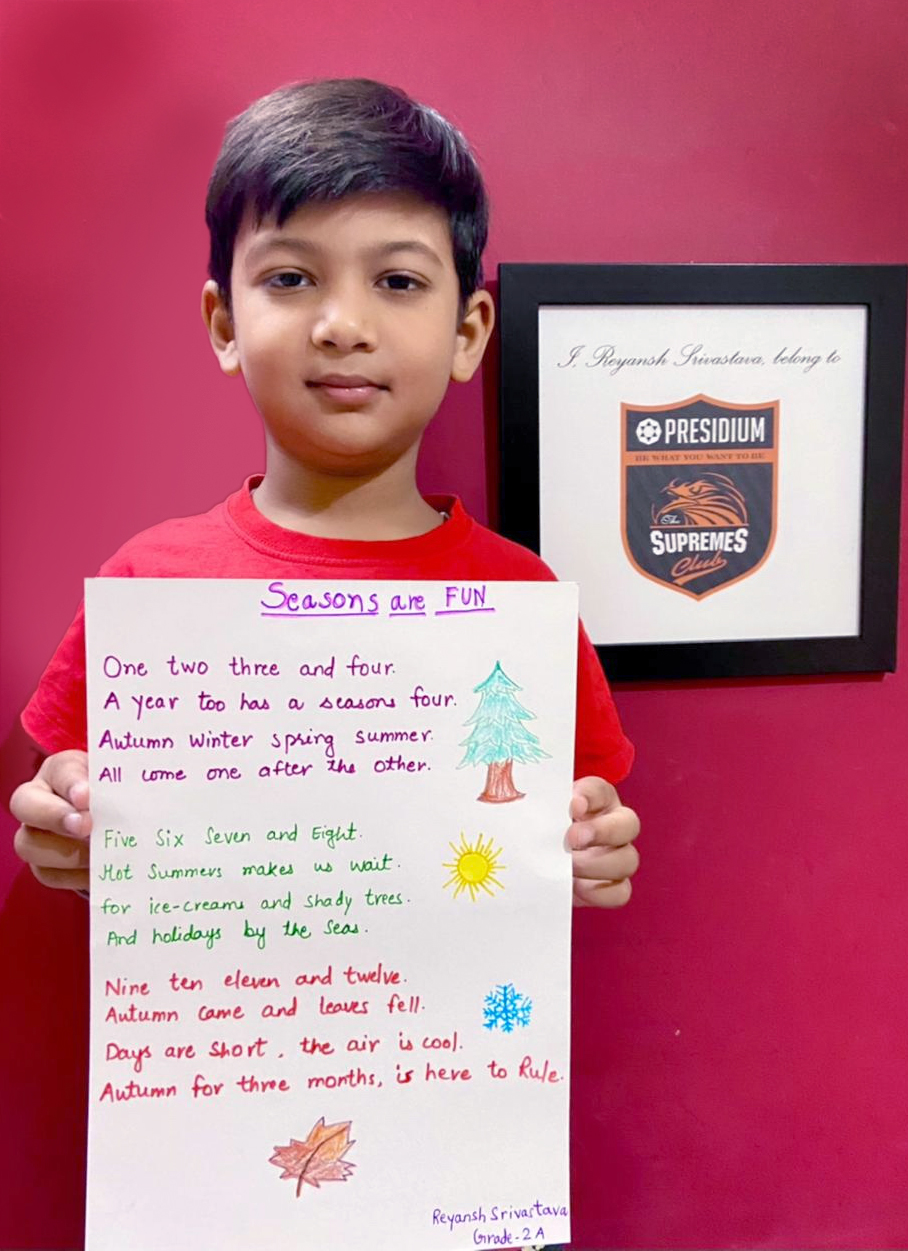 I, Reyansh Srivastava, belong to
PRESIDIUM
BE WHAT YOU WANT TO BE
The
SUPREMES
Club
Seasons are FUN
One two three and four.
A year too has a seasons four.
Autumn Winter spring summer.
All come one after the other.
Five Six Seven and Eight.
Hot Summers makes us wait.
for ice-creams and shady trees.
And holidays by the Seas.
Nine ten eleven and twelve.
Autumn came and leaves fell.
Days are short, the air is cool.
Autumn for three months, is here to Rule.
Reyansh Srivastava
Grade-2 A